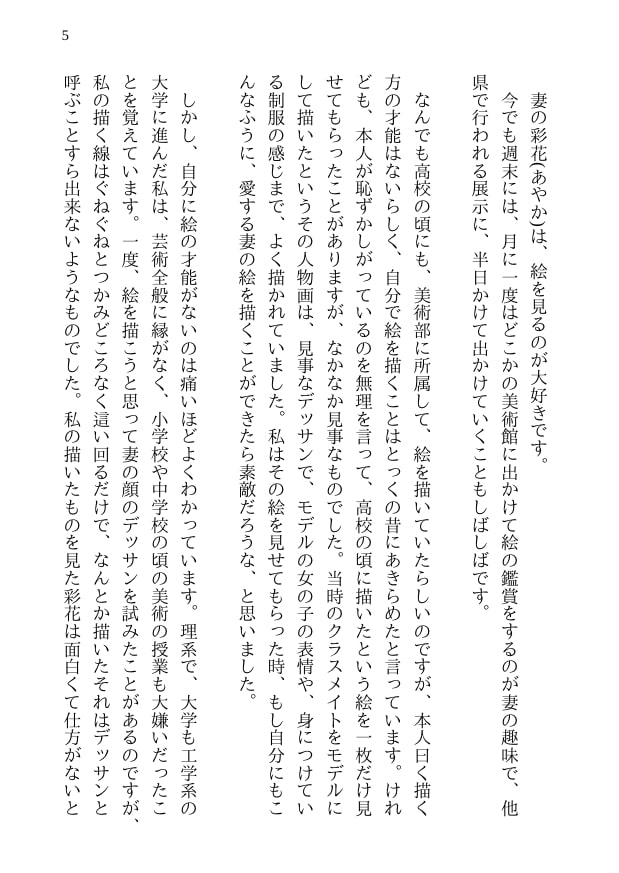 5
妻の彩花(あやか)は、絵を見るのが大好きです。
今でも週末には、月に一度はどこかの美術館に出かけて絵の鑑賞をするのが妻の趣味で、他
県で行われる展示に、半日かけて出かけていくこともしばしばです。
なんでも高校の頃にも、美術部に所属して、絵を描いていたらしいのですが、本人曰く描く
方の才能はないらしく、自分で絵を描くことはとっくの昔にあきらめたと言っています。けれ
ども、本人が恥ずかしがっているのを無理を言って、高校の頃に描いたという絵を一枚だけ見
せてもらったことがありますが、なかなか見事なものでした。当時のクラスメイトをモデルに
して描いたというその人物画は、見事なデッサンで、モデルの女の子の表情や、身につけてい
る制服の感じまで、よく描かれていました。私はその絵を見せてもらった時、もし自分にもこ
んなふうに、愛する妻の絵を描くことができたら素敵だろうな、と思いました。
しかし、自分に絵の才能がないのは痛いほどよくわかっています。理系で、大学も工学系の
大学に進んだ私は、芸術全般に縁がなく、小学校や中学校の頃の美術の授業も大嫌いだったこ
とを覚えています。一度、絵を描こうと思って妻の顔のデッサンを試みたことがあるのですが、
私の描く線はぐねぐねとつかみどころなく這い回るだけで、なんとか描いたそれはデッサンと
呼ぶことすら出来ないようなものでした。私の描いたものを見た彩花は面白くて仕方がないと